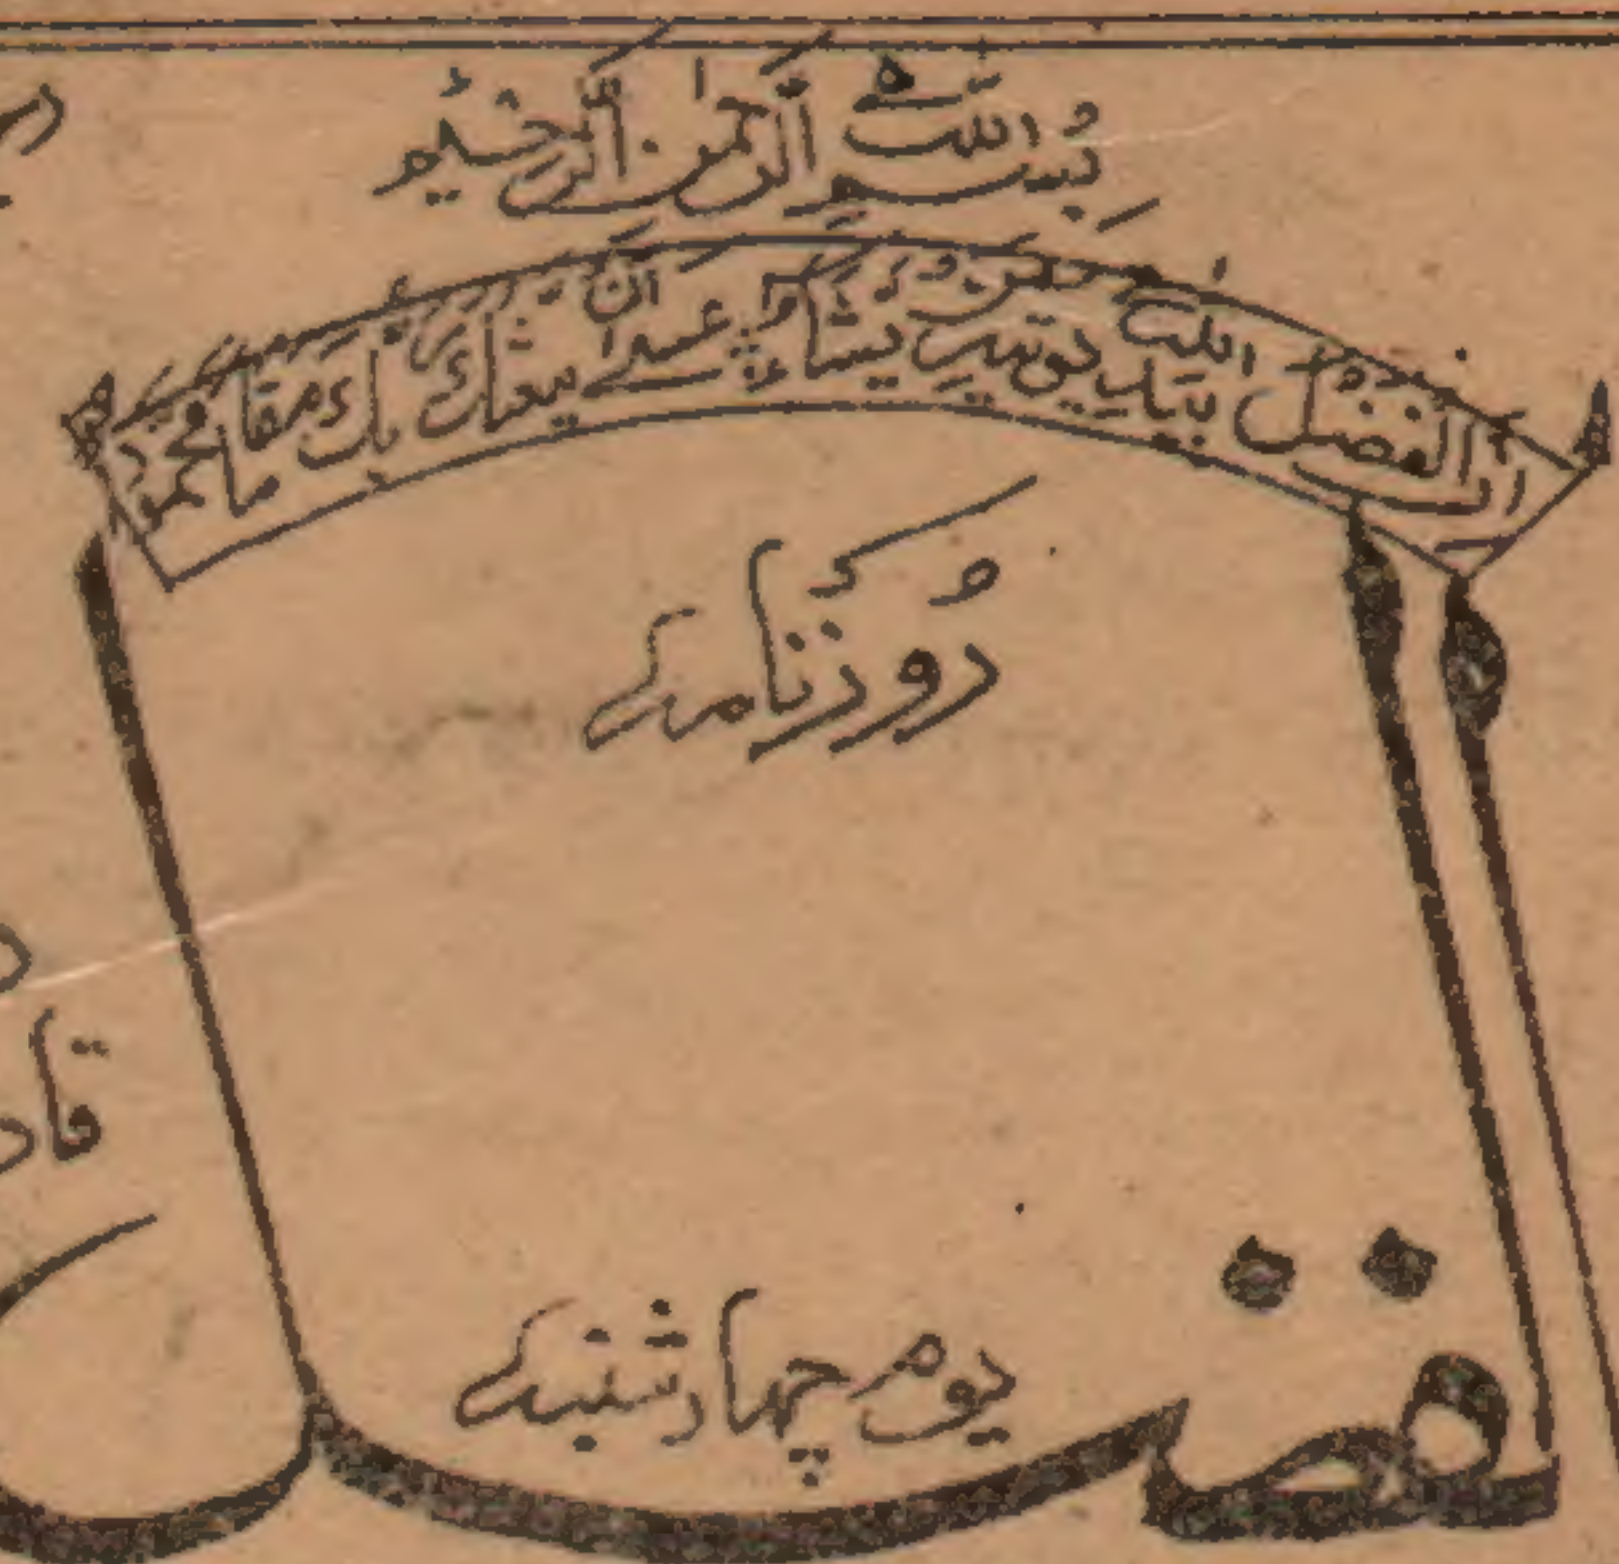 بِسْمِ اللهِ الرَّحْمٰنِ الرَّحِيْمِ
اِنَّ الْفَضْلَ بِيَدِ اللهِ يُؤْتِيْهِ مَنْ يَّشَآءُ عَسٰى اَنْ يَّبْعَثَكَ رَبُّكَ مَقَامًا مَّحْمُوْدًا
روزنامہ
الفضل
یوم چہارشنبہ